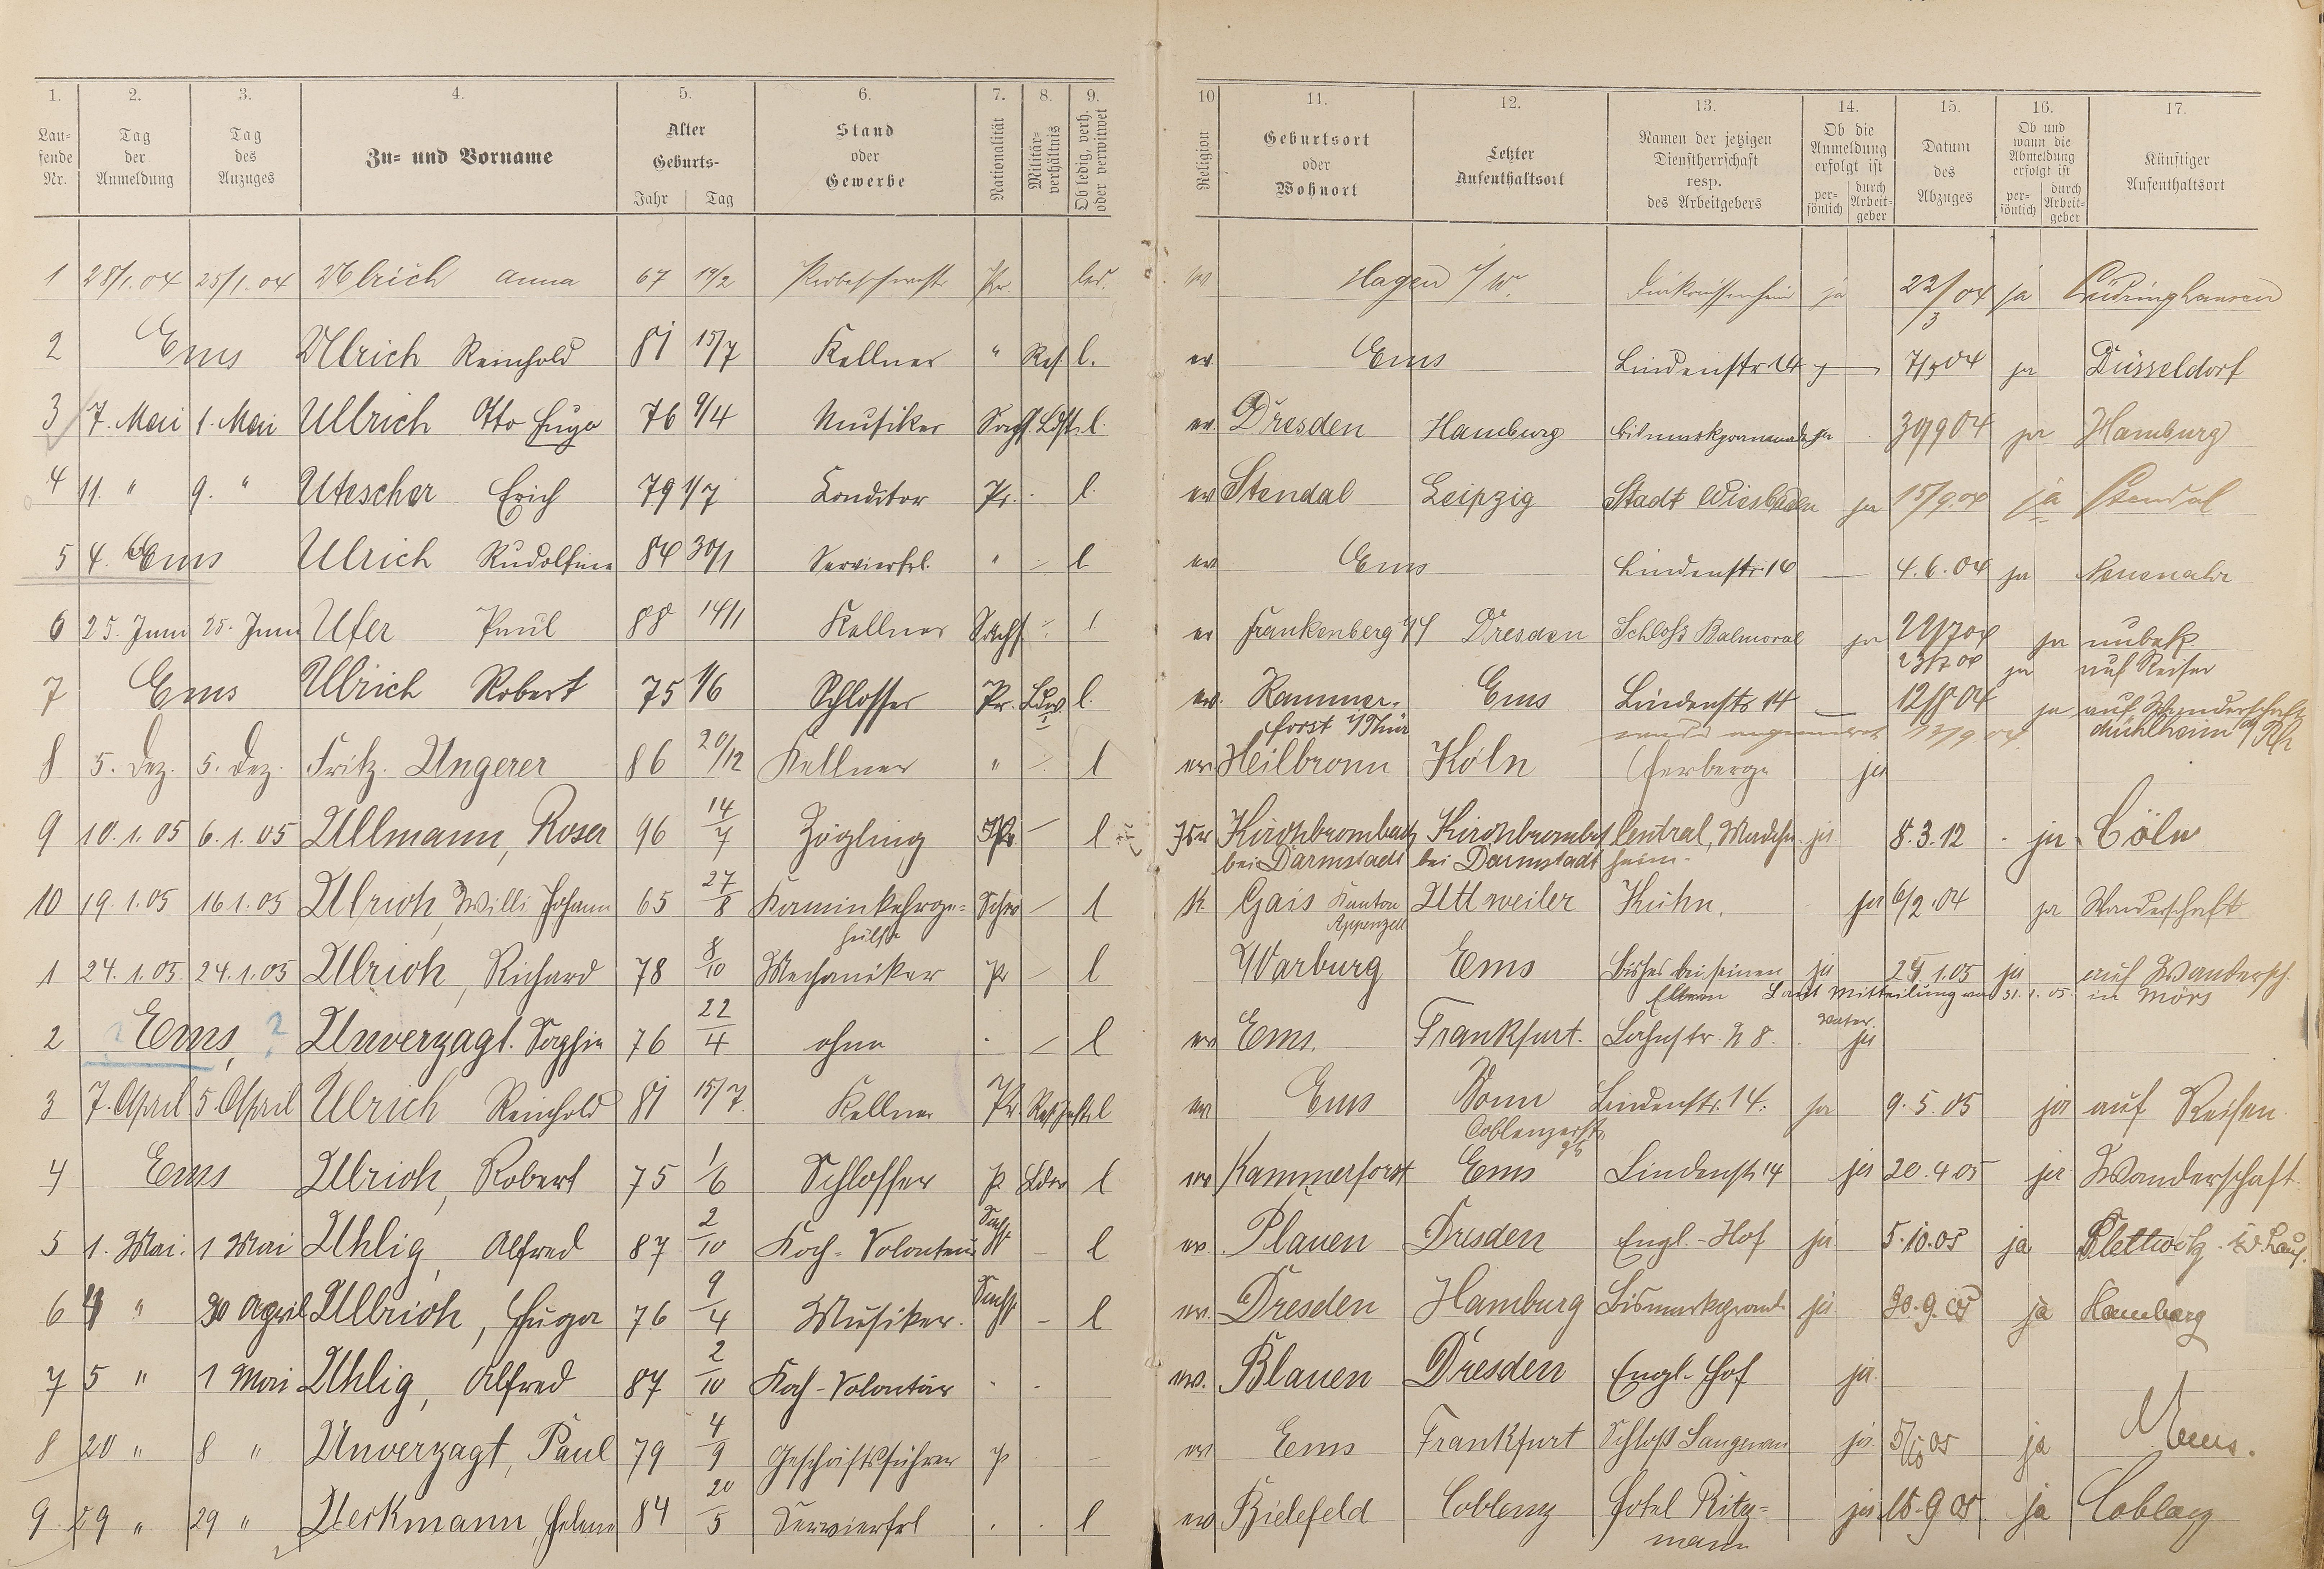 1. 2. 3. 4. 5. 6. 7. 8. 9. 10 11. 12. 13. 14. 15. 16. 17.
Lau-fende Nr. Tag der Anmeldung Tag des Anzuges Zu- und Vorname Alter Geburts- Jahr Tag Stand oder Gewerbe Nationalität Militär-verhältnis Ob ledig, verh. oder verwitwet Religion Geburtsort oder Wohnort Letzter Aufenthaltsort Namen der jetzigen Dienstherrschaft resp. des Arbeitgebers Ob die Anmeldung erfolgt ist per-sönlich durch Arbeit-geber Datum des Abzuges Ob und wann die Abmeldung erfolgt ist per-sönlich durch Arbeit-geber Künftiger Aufenthaltsort
1 28/1.04 25/1.04 Ulrich Anna 67 19/2 Pr. led. Hagen i/W. ja 22/3 04 ja Lüdinghausen
2 Ems Ulrich Reinhold 81 15/7 Kellner " Res l. ev Ems Lindenstr 14 — 7/3 04 ja Düsseldorf
3 7. Mai 1. Mai Ullrich Otto Hugo 76 9/4 Musiker Sachs. Ldst. l. ev. Dresden Hamburg Bismarkpromenade ja 30/9 04 ja Hamburg
4 11. " 9. " Utescher Erich 79 1/7 Conditor Pr. l. ev Stendal Leipzig Stadt Wiesbaden ja 15/9.04 ja Stendal
5 4. Ems Ulrich Rudolfine 84 30/1 Servierfrl. " l ev Ems Lindenstr. 14 — 4.6.04 ja Neuenahr
6 25. Juni 25. Juni Ufer Paul 88 14/1 Kellner Sachs l. ev Frankenberg i/S Dresden Schloß Balmoral ja 22/7 04 ja unbek.
23/7 04 ja auf Reisen
7 Ems Ulrich Robert 75 1/6 Schlosser Pr. Ldw l. ev. Kammer- Ems Lindenstr 14 — 12/8 04 ja auf Wanderschaft
forst i/Thür 13/9.04 Mühlheim a/Rh
8 5. Dez. 5. Dez. Fritz Ungerer 86 20/12 Kellner " l ev Heilbronn Köln Herberge ja
9 10.1.05 6.1.05 Ullmann, Rosa 96 14/7 Zögling Pr — l Isr Kirchbrombach Kirchbrombach Central, Mädchen ja 8.3.12 ja Cöln
bei Darmstadt bei Darmstadt heim.
10 19.1.05 16.1.05 Ulrich, Willi Johann 65 27/8 Kaminkehrge- Schw — l K Gais Kanton Uttweiler Kühn. ja 6/2.04 ja Wanderschaft
hülfe Appenzell
1 24.1.05. 24.1.05 Ulrich, Richard 78 8/10 Mechaniker Pr — l Warburg Ems Bisher bei seinen ja 24.1.05 ja auf Wandersch.
Eltern Laut Mitteilung vom 31.1.05. in Mörs
2 Ems, ? Unverzagt. Sophie 76 22/4 ohne l ev Ems. Frankfurt. Lahnstr. N 8. Vater ja
3 7. April 5. April Ulrich Reinhold 81 15/7. Kellner Pr l ev Ems Bonn Lindenstr. 14. ja 9.5.05 ja auf Reisen.
Coblenzerstr.
4 Ems Ulrich, Robert 75 1/6 Schlosser P Ldw l ev Kammerforst Ems Lindenstr 14 ja 20.4.05 ja Wanderschaft.
5 1. Mai. 1 Mai Uhlig, Alfred 87 2/10 Koch-Volontair Sachs — l ev. Plauen Dresden Engl.-Hof ja 5.10.05 ja
6 4 " 30 April Ullrich, Hugo 76 9/4 Musiker. Sachs — l ev. Dresden Hamburg Bismarkprom. ja 30.9.05 ja Hamburg
7 5 " 1 Mai Uhlig, Alfred 87 2/10 Koch-Volontär - - ev. Blauen Dresden Engl. Hof ja.
8 20 " 8 " Unverzagt, Paul 79 4/9 Geschäftsführer P ev Ems Frankfurt Schloß Langenau ja 5/10 05 ja
9 29 " 29 " Uekmann, Helene 84 20/5 Servierfrl . . l ev Bielefeld Coblenz Hotel Ritz- ja 15.9 05. ja Coblenz
mann